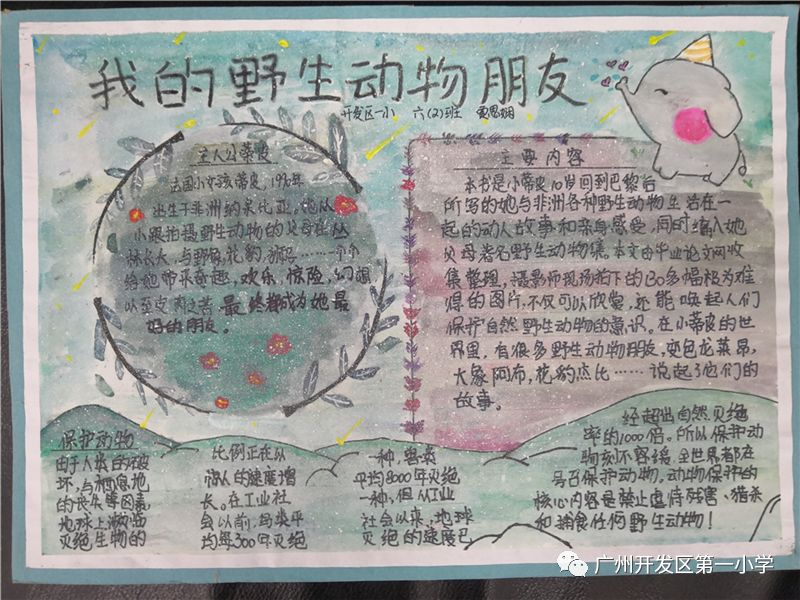 我的野生动物朋友
开发区一小 六(2)班
主人公蒂皮
法国小女孩蒂皮,1990年
出生于非洲纳米比亚。她从
小跟拍摄野生动物的父母在丛
林长大,与野
给她带来奇趣,欢乐,惊险,幻想
以至皮肉之苦。最终都成为她最
好的朋友。
主要内容
本书是小蒂皮10岁回到巴黎后
所写的她与非洲各种野生动物生活在一
起的动人故事和亲身感受,同时编入她
父母著名野生动物集。本文由毕业论文网收
集整理,摄影师现场拍下的130多幅极为难
得的图片,不仅可以欣赏,还能唤起人们
保护自然野生动物的意识。在小蒂皮的世
界里,有很多野生动物朋友,变色龙莱昂,
大象阿布,花豹杰比……说起了它们的
故事。
保护动物
由于人类的破
坏,与栖息地
的丧失等因素,
地球上濒临
灭绝生物的
比例正在以
惊人的速度增
长。在工业社
会以前,鸟类平
均每300年灭绝
一种,兽类
平均8000年灭绝
一种,但从工业
社会以来,地球
灭绝的速度已
经超出自然灭绝
率的1000倍。所以保护动
物刻不容缓,全世界都在
号召保护动物。动物保护的
核心内容是禁止虐待残害、猎杀
和捕食任何野生动物!
广州开发区第一小学